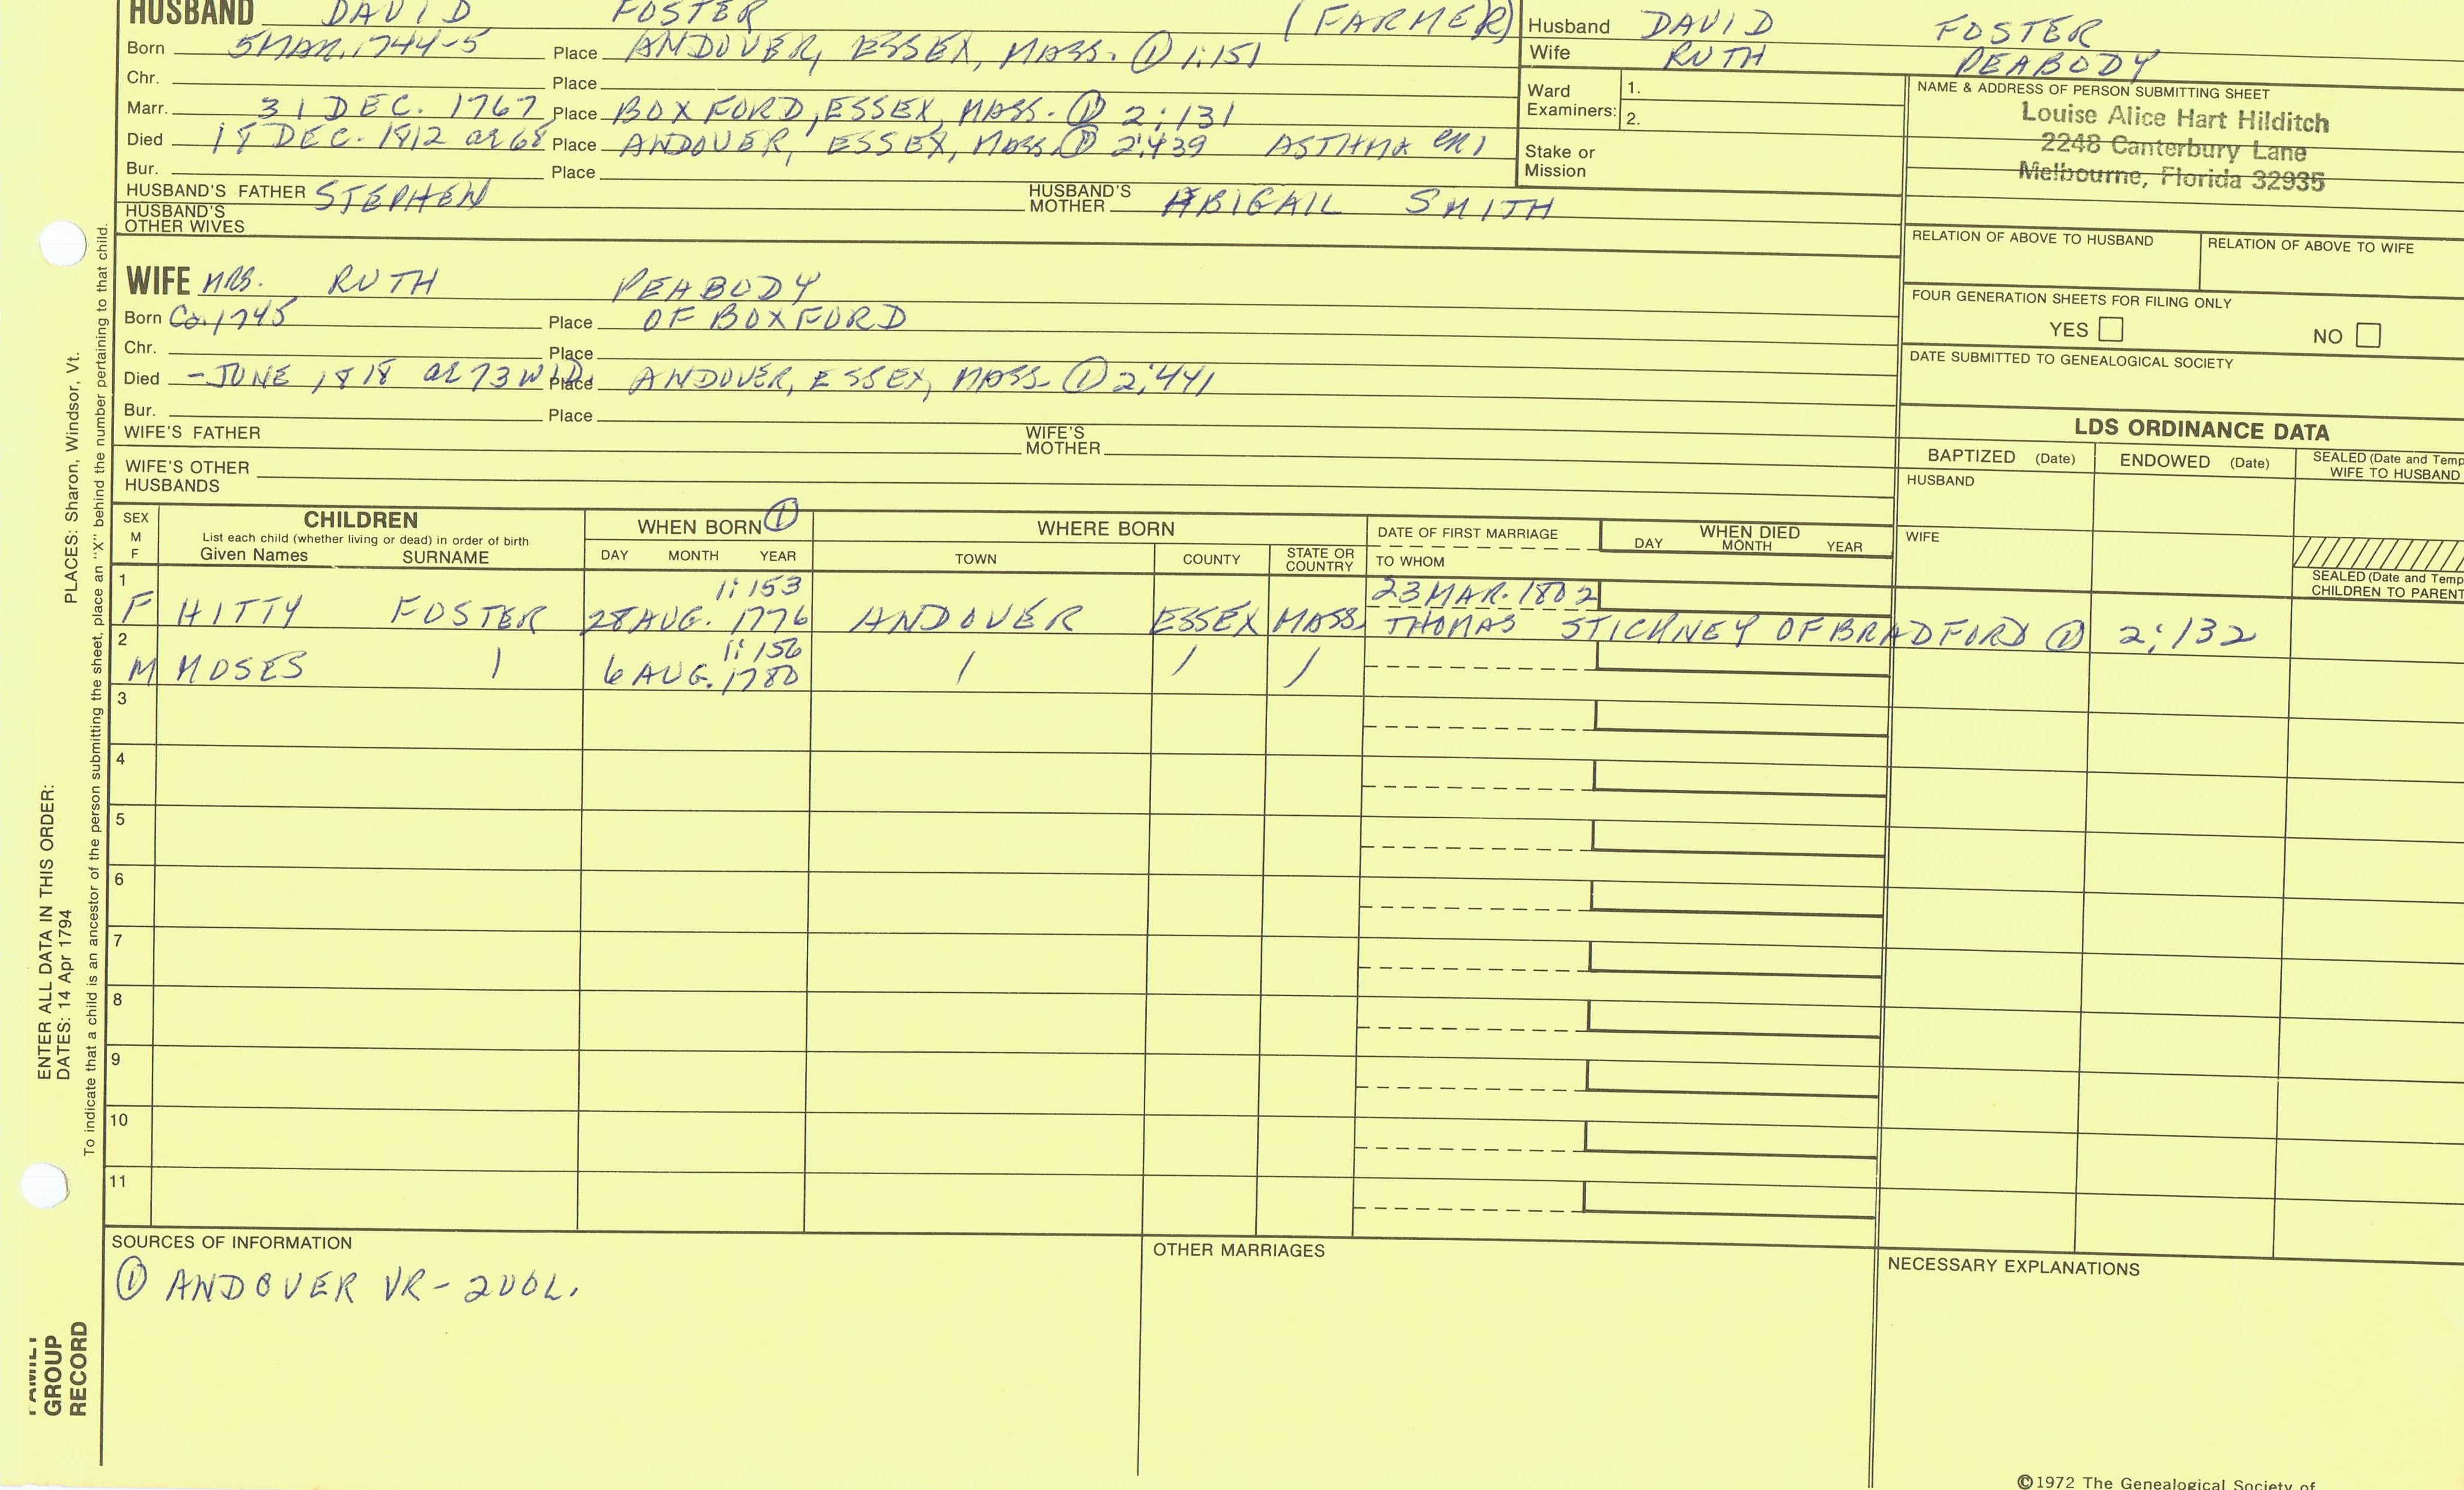 HUSBAND DAVID FOSTER (FARMER)
Born 5 MAR. 1744-5 Place ANDOVER, ESSEX, MASS. ① 1:151
Chr. Place
Marr. 31 DEC. 1767 Place BOXFORD, ESSEX, MASS. ① 2:131
Died 18 DEC. 1812 ae 68 Place ANDOVER, ESSEX, MASS. ① 2:439 ASTHMA CR1
Bur. Place
HUSBAND'S FATHER STEPHEN HUSBAND'S MOTHER ABIGAIL SMITH
HUSBAND'S OTHER WIVES
Husband DAVID FOSTER
Wife RUTH PEABODY
Ward Examiners: 1.
2.
Stake or Mission
NAME & ADDRESS OF PERSON SUBMITTING SHEET
Louise Alice Hart Hilditch
2248 Canterbury Lane
Melbourne, Florida 32935
RELATION OF ABOVE TO HUSBAND RELATION OF ABOVE TO WIFE
FOUR GENERATION SHEETS FOR FILING ONLY
YES NO
DATE SUBMITTED TO GENEALOGICAL SOCIETY
WIFE MRS. RUTH PEABODY
Born Ca. 1745 Place OF BOXFORD
Chr. Place
Died - JUNE 1818 ae 73 WID. Place ANDOVER, ESSEX, MASS. ① 2:441
Bur. Place
WIFE'S FATHER WIFE'S MOTHER
WIFE'S OTHER HUSBANDS
LDS ORDINANCE DATA
BAPTIZED (Date) ENDOWED (Date) SEALED (Date and Temp
WIFE TO HUSBAND
HUSBAND
WIFE
SEALED (Date and Temp
CHILDREN TO PARENT
SEX M F
CHILDREN
List each child (whether living or dead) in order of birth
Given Names SURNAME
WHEN BORN ①
DAY MONTH YEAR
WHERE BORN
TOWN COUNTY STATE OR COUNTRY
DATE OF FIRST MARRIAGE
TO WHOM
WHEN DIED
DAY MONTH YEAR
1 1:153 23 MAR. 1802
F HITTY FOSTER 28 AUG. 1776 ANDOVER ESSEX MASS. THOMAS STICKNEY OF BRADFORD ① 2:132
2 1:156
M MOSES 1 6 AUG. 1780 / / /
3
4
5
6
7
8
9
10
11
SOURCES OF INFORMATION
① ANDOVER VR - 2VOL.
OTHER MARRIAGES
NECESSARY EXPLANATIONS
©1972 The Genealogical Society of
ENTER ALL DATA IN THIS ORDER:
DATES: 14 Apr 1794
PLACES: Sharon, Windsor, Vt.
To indicate that a child is an ancestor of the person submitting the sheet, place an "X" behind the number pertaining to that child.
FAMILY
GROUP
RECORD